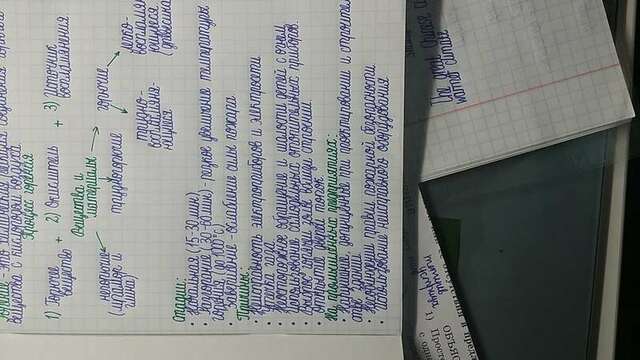 Горение - это химическая реакция соединения горючего
вещества с кислородом воздуха
Процесс горения
1) Горючее + 2) Окислитель + 3) Источник
вещество воспламенения
Вещества и
материалы
негорючие горючие
(мрамор и трудногорючие
глина)
трудно- легко-
воспламеня- воспламен
ющиеся ющиеся
(древесина
Стадии:
• Начальная (15-30 мин)
• Разгорание (30-60мин) - резкое увеличение температуры
горения (до 1000°c)
• Завершение - ослабление силы пожара
Причины:
• Неисправность электроприборов и электросети
• Утечка газа
• Неосторожное обращение и шалости детей с огнем
• Использование самодельных отопительных приборов.
• Выброс горящей золы вблизи строений.
• Открытие дверей топок
На промышленных предприятиях:
• Нарушение, допущенное при проектировании и строитель
стве зданий
• Несоблюдении правил пожарной безопасности
• Использование неисправного оборудования
The great Chinese
warmer climate
1) Просте
ОБЪЯС